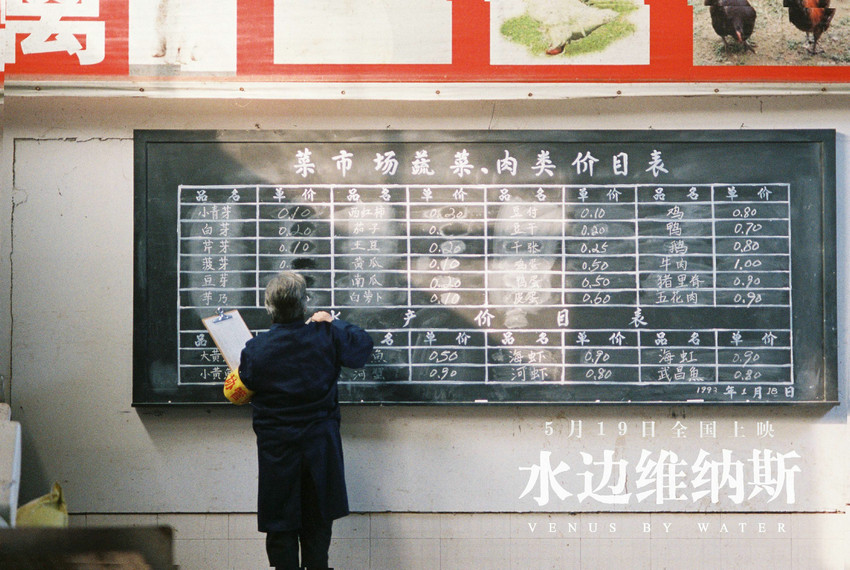 禽
菜市场蔬菜、肉类价目表
品名 单价 品名 单价 品名 单价 品名 单价
小青芽 0.10 西红柿 0.20 豆付 0.10 鸡 0.80
白芽 0.20 茄子 豆干 0.20 鸭 0.70
芹芽 0.10 土豆 0.20 千张 0.25 鹅 0.80
菠芽 黄瓜 0.10 0.50 牛肉 1.00
豆芽 南瓜 0.20 0.50 猪里脊 0.90
芋乃 白萝卜 0.10 皮蛋 0.60 五花肉 0.90
水产价目表
品 单价 品名 单价 品名 单价
大黄 鱼 0.50 海虾 0.90 海虹 0.90
小黄 河蟹 0.90 河虾 0.80 武昌鱼 0.80
年1月18日
5月19日全国上映
水边维纳斯
VENUS BY WATER